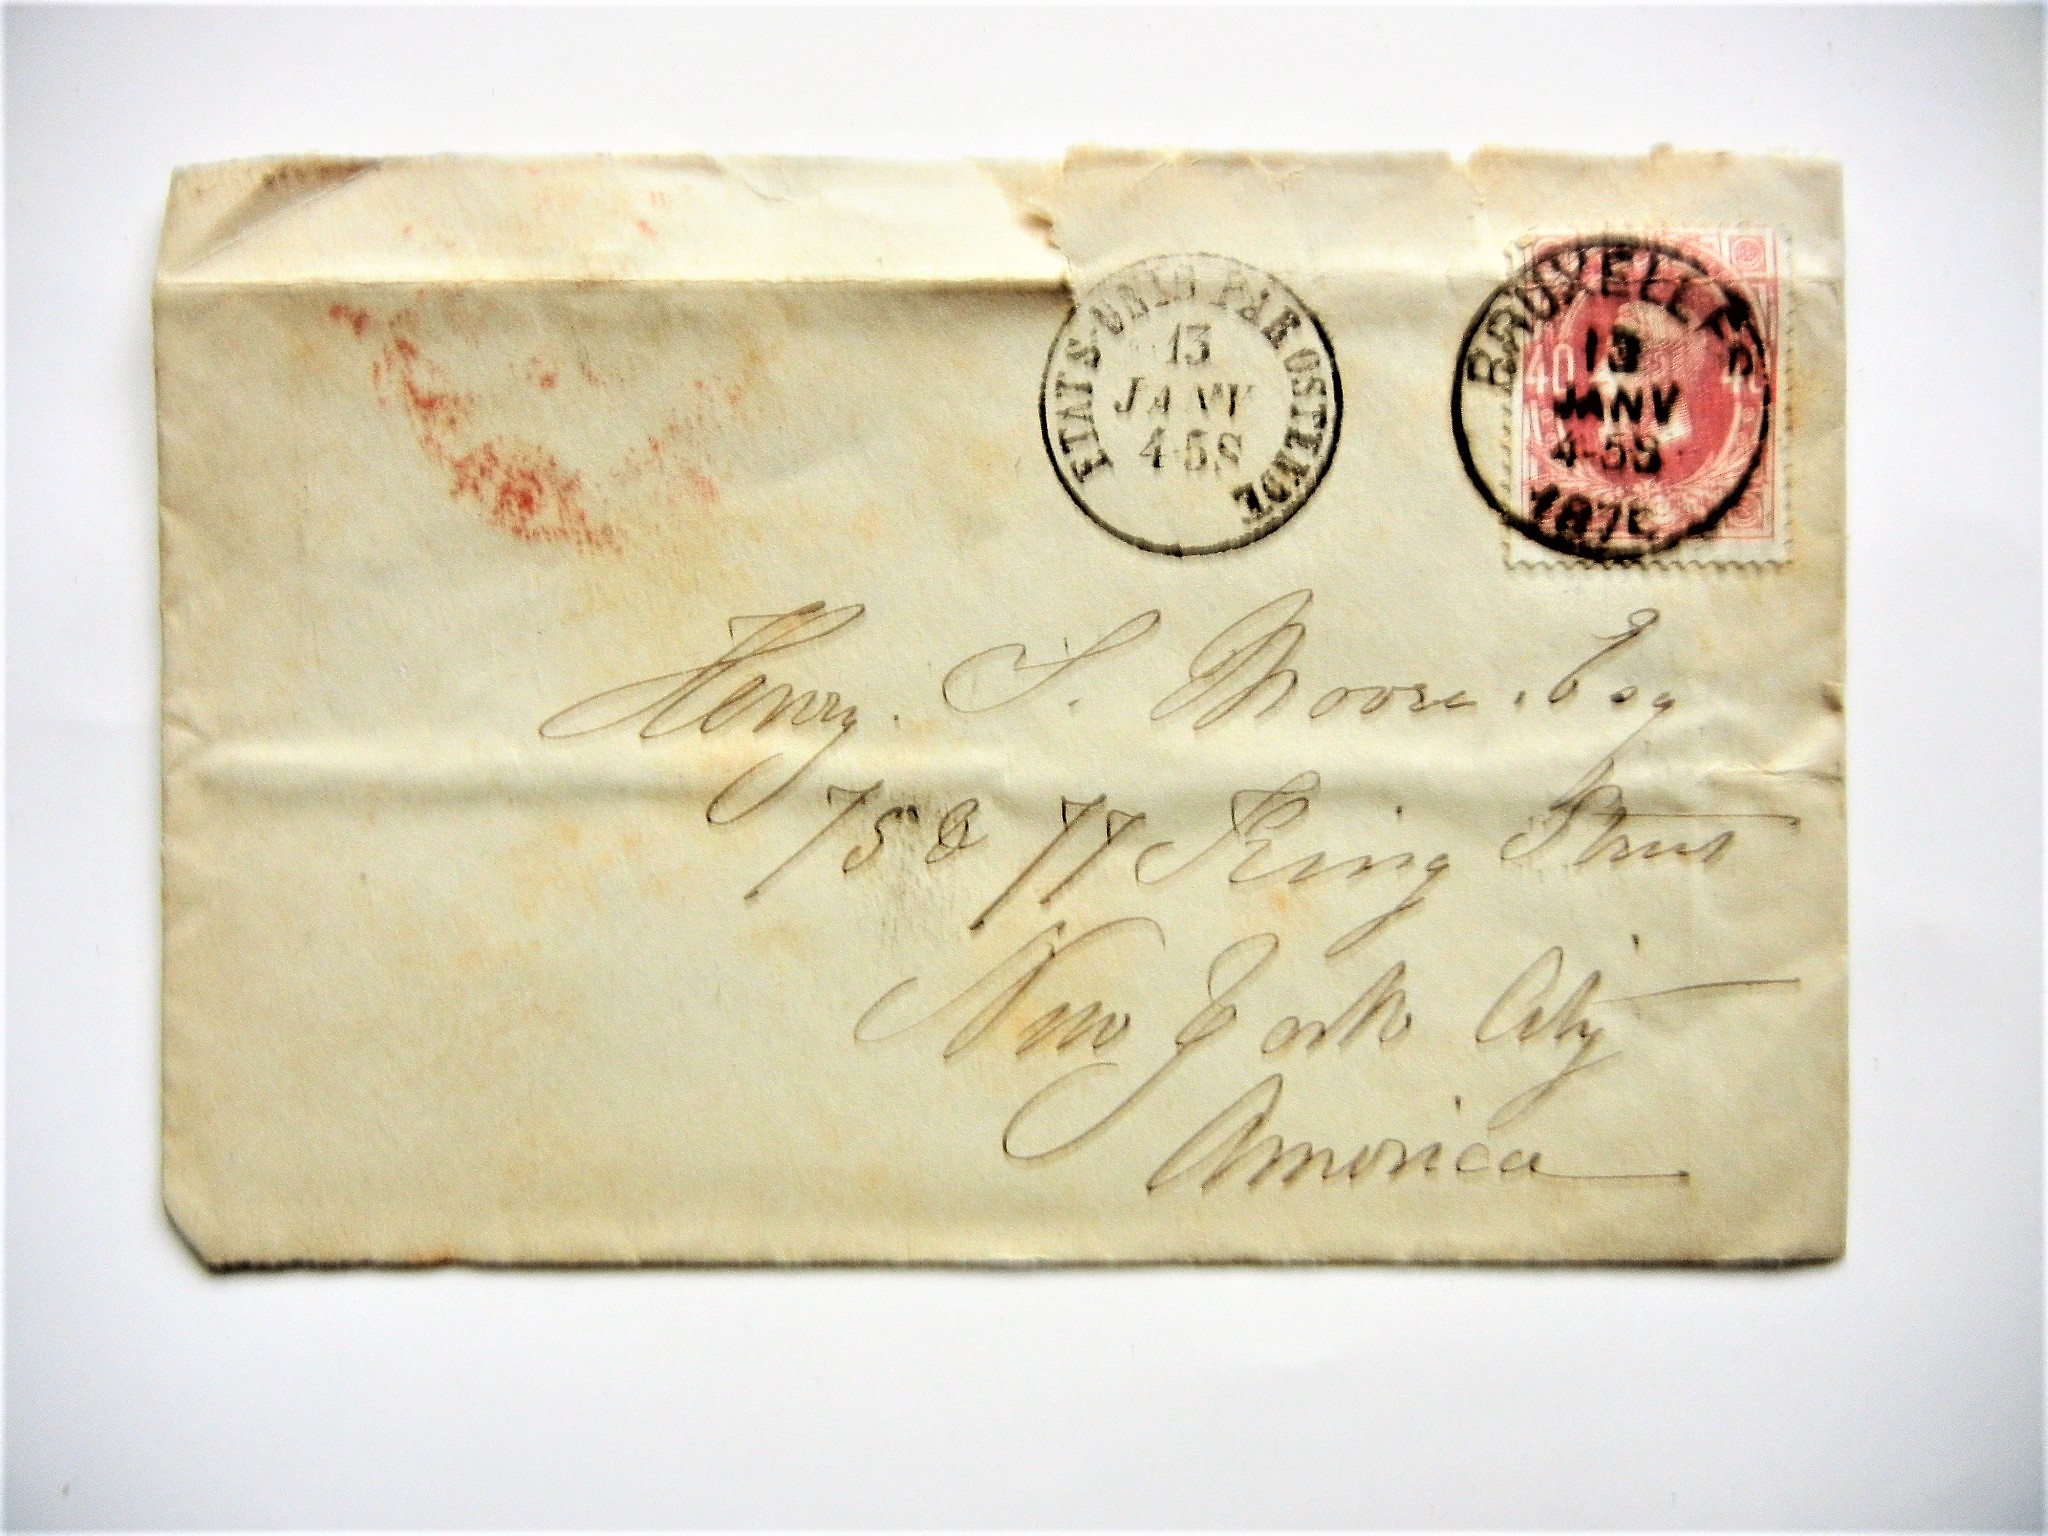 ETATS-UNIS PAR OSTENDE
13
JANV
4-5S
BRUXELLES
13
JANV
4-5S
187
40 40
Henry. S. Moore. Esq
75 & 77 King Street
New York City
America